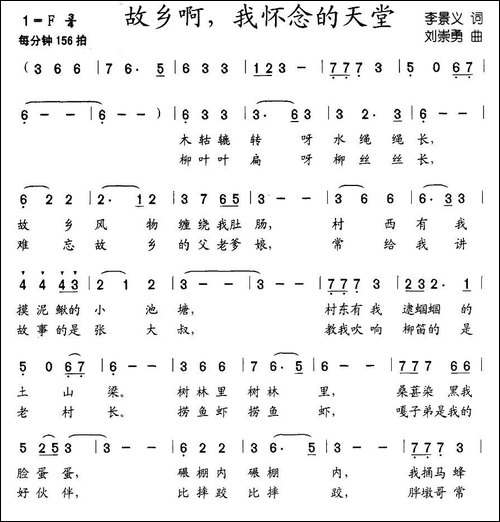 故乡啊，我怀念的天堂
1=F 3/8
每分钟156拍
李景义 词
刘崇勇 曲
( 3 6 6 | 7 6· 5 | 6 3 3 | 3 2· 3 | 7 7 7 3 | 5 0 6 7 |
6 - - | 6 - - ) | 6 6 1 | 3· 6 3 | 3 2· 3 | 6 - - |
木轱辘转呀水绳绳长，
柳叶叶扁呀柳丝丝长，
6 2 2 | 2· 1 2 | 3 7 6 5 | 3 - - | 3 6 6 | 6· 3 3 |
故乡风物缠绕我肚肠，村西有我
难忘故乡的父老爹娘，常给我讲
4 4 4 3 | 2 1 2 | 3 - - | 3 - - | 7 7 7 3 | 2 3 2· 1 |
摸泥鳅的小池塘，村东有我逮蝈蝈的
故事的是张大叔，教我吹响柳笛的是
5 0 6 7 | 6 - - | 3 6 6 | 7 6· 5 | 3 - - | 7 7 7 6 6 |
土山梁。树林里树林里，桑葚染黑我
老村长。捞鱼虾捞鱼虾，嘎子弟是我的
5 2 5 3 | 3 - - | 6 2 2 | 3 2· 1 | 6 - - | 7 7 7 3 |
脸蛋蛋，碾棚内碾棚内，我捅马蜂
好伙伴，比摔跤比摔跤，胖墩哥常